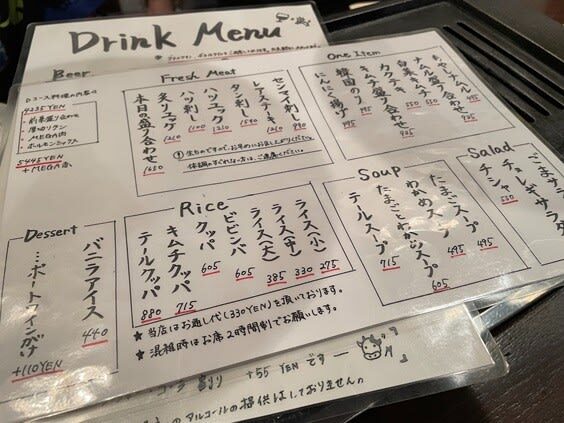 Drink Menu
Beer
コース料理の内容は
4235 YEN
・前菜盛り合わせ
・厚切りタン
・MEGA肉
・ホルモンミックス
5445 YEN
+MEGA盛
Fresh Meat
センマイ刺し 990
レアステーキ
タン刺し
ハツユッケ
ハツ刺し 1100
炙りユッケ
本日の盛り合わせ 1650
One Item
ナムル
ナムル盛り合わせ
白菜キムチ 550
カクテキ 550
キムチ盛り合わせ 935
韓国のり
にんにく揚げ 495
Rice
ライス(小) 275
ライス(中) 330
ライス(大) 385
ビビンバ 605
クッパ 605
キムチクッパ 715
テールクッパ 880
Soup
たまごスープ 495
わかめスープ 495
たまごとわかめスープ 605
テールスープ 715
Salad
ごまサラダ
チョレギサラダ
チシャ 550
Dessert
バニラアイス 440
…ポートワインがけ +110YEN
★ 当店はお通し代(330YEN)を頂いております。
★ 混雑時はお席2時間制でお願いします。
コーラ割り +55 YEN です
のアルコールの提供はしておりません。